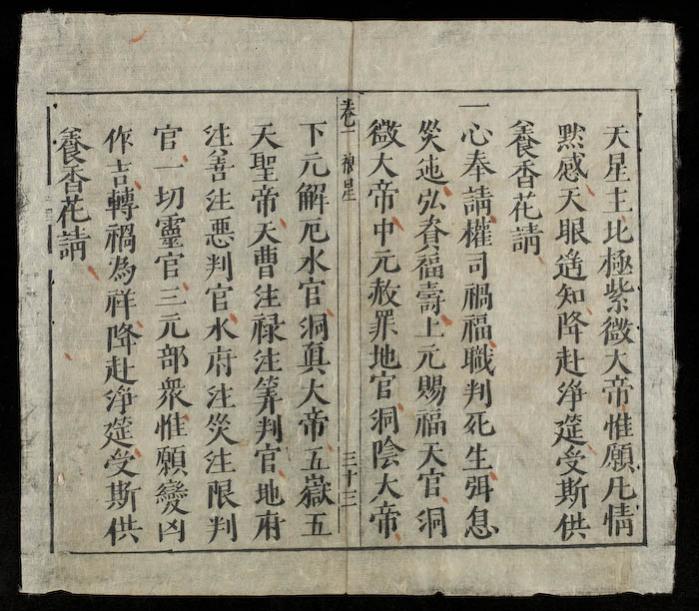 天星主北極紫微大帝惟願凢情
黙感天眼遥知降赴淨筵受斯供
養香花請
一心奉請權司禍福職判死生弭息
災迍弘賚福壽上元賜福天官洞
微大帝中元赦罪地官洞陰大帝
卷一 禳星 三十三
下元解厄水官洞真大帝五嶽五
天聖帝天曹注禄注筭判官地府
注善注惡判官水府注災注限判
官一切靈官三元部衆惟願變凶
作吉轉禍為祥降赴淨筵受斯供
養香花請